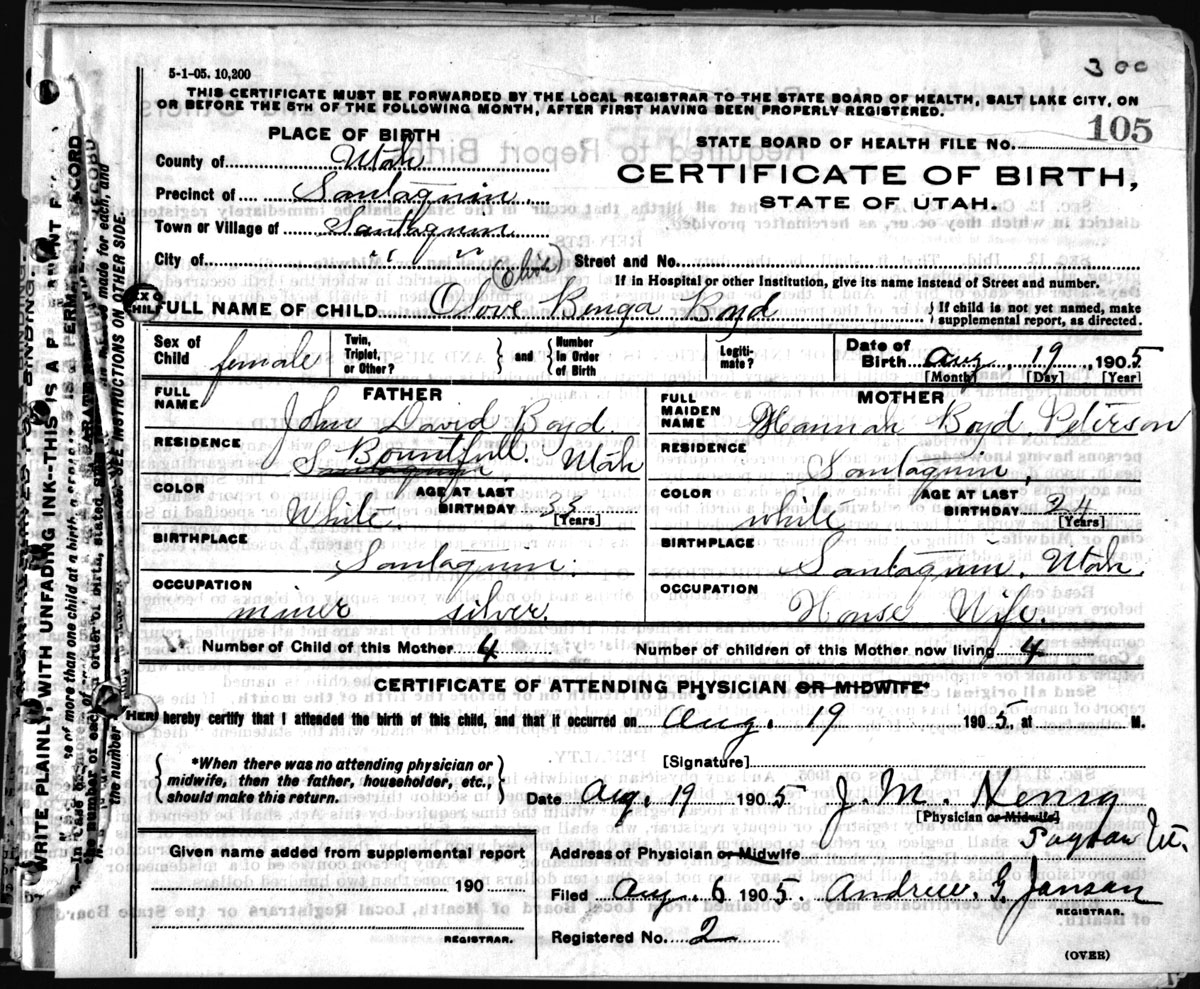 5-1-05. 10,200
300
THIS CERTIFICATE MUST BE FORWARDED BY THE LOCAL REGISTRAR TO THE STATE BOARD OF HEALTH, SALT LAKE CITY, ON
OR BEFORE THE 5TH OF THE FOLLOWING MONTH, AFTER FIRST HAVING BEEN PROPERLY REGISTERED.
PLACE OF BIRTH
STATE BOARD OF HEALTH FILE NO. 105
County of Utah
CERTIFICATE OF BIRTH,
Precinct of Santaquin
STATE OF UTAH.
Town or Village of Santaquin
City of " " Street and No.
If in Hospital or other Institution, give its name instead of Street and number.
FULL NAME OF CHILD Olove Boyd
If child is not yet named, make
supplemental report, as directed.
Sex of
Child female
Twin,
Triplet,
or Other?
and
Number
in Order
of Birth
Legiti-
mate?
Date of
Birth Aug. 19, 1905
[Month] [Day] [Year]
FATHER
FULL
NAME John David Boyd
RESIDENCE
Bountfull. Utah
Santaquin
COLOR White. AGE AT LAST
BIRTHDAY 33
[Years]
BIRTHPLACE
Santaquin.
OCCUPATION
miner silver.
MOTHER
FULL
MAIDEN
NAME Hannah Boyd Peterson
RESIDENCE
Santaquin,
COLOR white AGE AT LAST
BIRTHDAY 24
[Years]
BIRTHPLACE
Santaquin. Utah.
OCCUPATION
House Wife.
Number of Child of this Mother 4 Number of children of this Mother now living 4
CERTIFICATE OF ATTENDING PHYSICIAN OR MIDWIFE*
I hereby certify that I attended the birth of this child, and that it occurred on Aug. 19 1905, at M.
*When there was no attending physician or
midwife, then the father, householder, etc.,
should make this return.
[Signature]
Date Aug. 19 1905 J. M. Henry
[Physician or Midwife]
Payson Ut.
Given name added from supplemental report
190
REGISTRAR.
Address of Physician or Midwife
Filed Aug. 6 1905. Andrew. G. Janson
REGISTRAR.
Registered No. 2
(OVER)
WRITE PLAINLY WITH UNFADING INK--THIS IS A PERMANENT RECORD
SEE INSTRUCTIONS ON OTHER SIDE.